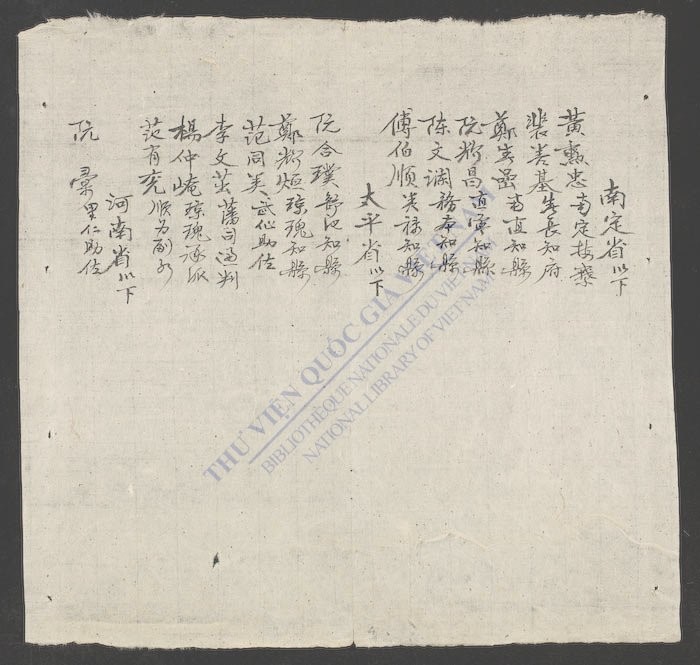 南定省以下
黄忠南定按察
裴善基春長知府
鄭知縣
阮輝昌直寧知縣
陳文務本知縣
傅伯順美祿知縣
太平省以下
阮合璞舒池知縣
鄭輝烜瓊瑰知縣
范同美武仙助佐
李文茁藩司通判
楊仲崦瓊瑰派
范有堯順為副
河南省以下
阮里仁助佐
THƯ VIỆN QUỐC GIA VIỆT NAM
BIBLIOTHÈQUE NATIONALE DU VIETNAM
NATIONAL LIBRARY OF VIETNAM